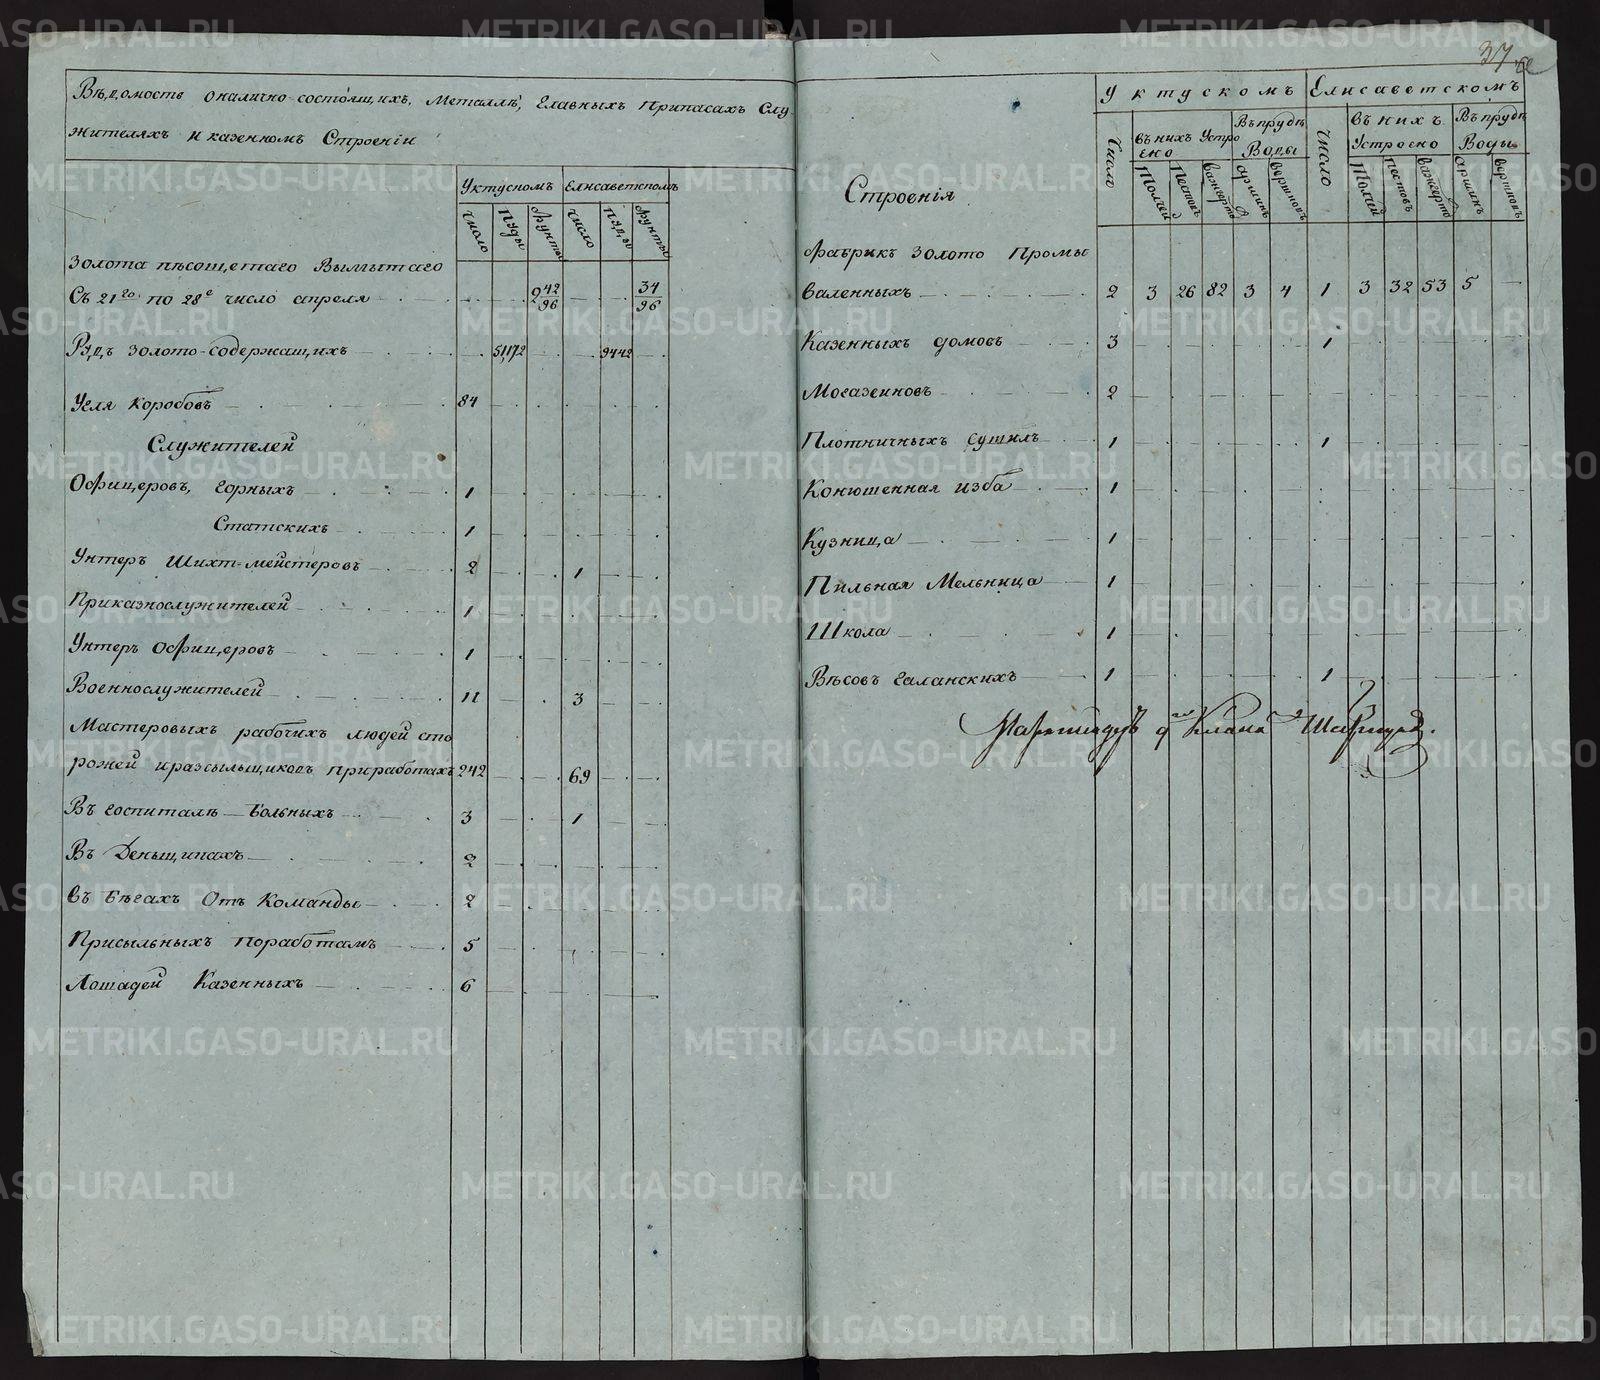 37
Вѣдомость о налично-состоящихъ, Металлѣ, Главныхъ Припасахъ Слу
жителяхъ и казенномъ Строеніи
Уктускомъ Елисаветскомъ
число пуды фунты число пуды фунты
Золота пѣсощетаго Вымытаго
Съ 21го по 28е число апреля 2 42/96 34/96
Рудъ золото-содержащихъ 51,172 9442
Угля коробовъ 84
Служителей
Офицеровъ, горныхъ 1
Статскихъ 1
Унтеръ Шихт-мейстеровъ 2 1
Приказнослужителей 1
Унтеръ Офицеровъ 1
Военнослужителей 11 3
Мастеровыхъ рабочихъ людей сто
рожей и разсыльщиковъ при работахъ 242 69
Въ госпиталѣ Больныхъ 3 1
Въ Деньщикахъ 2
въ Бѣгахъ Отъ Команды 2
Присыльныхъ по работамъ 5
Лошадей Казенныхъ 6
Уктускомъ Елисаветскомъ
Строенія
число въ нихъ Устро ено Въ прудѣ Воды число въ нихъ Устроено Въ прудѣ Воды
Толчей Пестовъ вашгерто аршинъ вершковъ Толчей пестовъ вашгерто аршинъ вершковъ
Фабрикъ золото Промы
валенныхъ 2 3 26 82 3 4 1 3 32 53 5
Казенныхъ домовъ 3 1
Могазеиновъ 2
Плотничныхъ сушилъ 1 1
Конюшенная изба 1
Кузница 1
Пильная Мельница 1
Школа 1
Вѣсовъ галанскихъ 1 1
METRIKI.GASO-URAL.RU